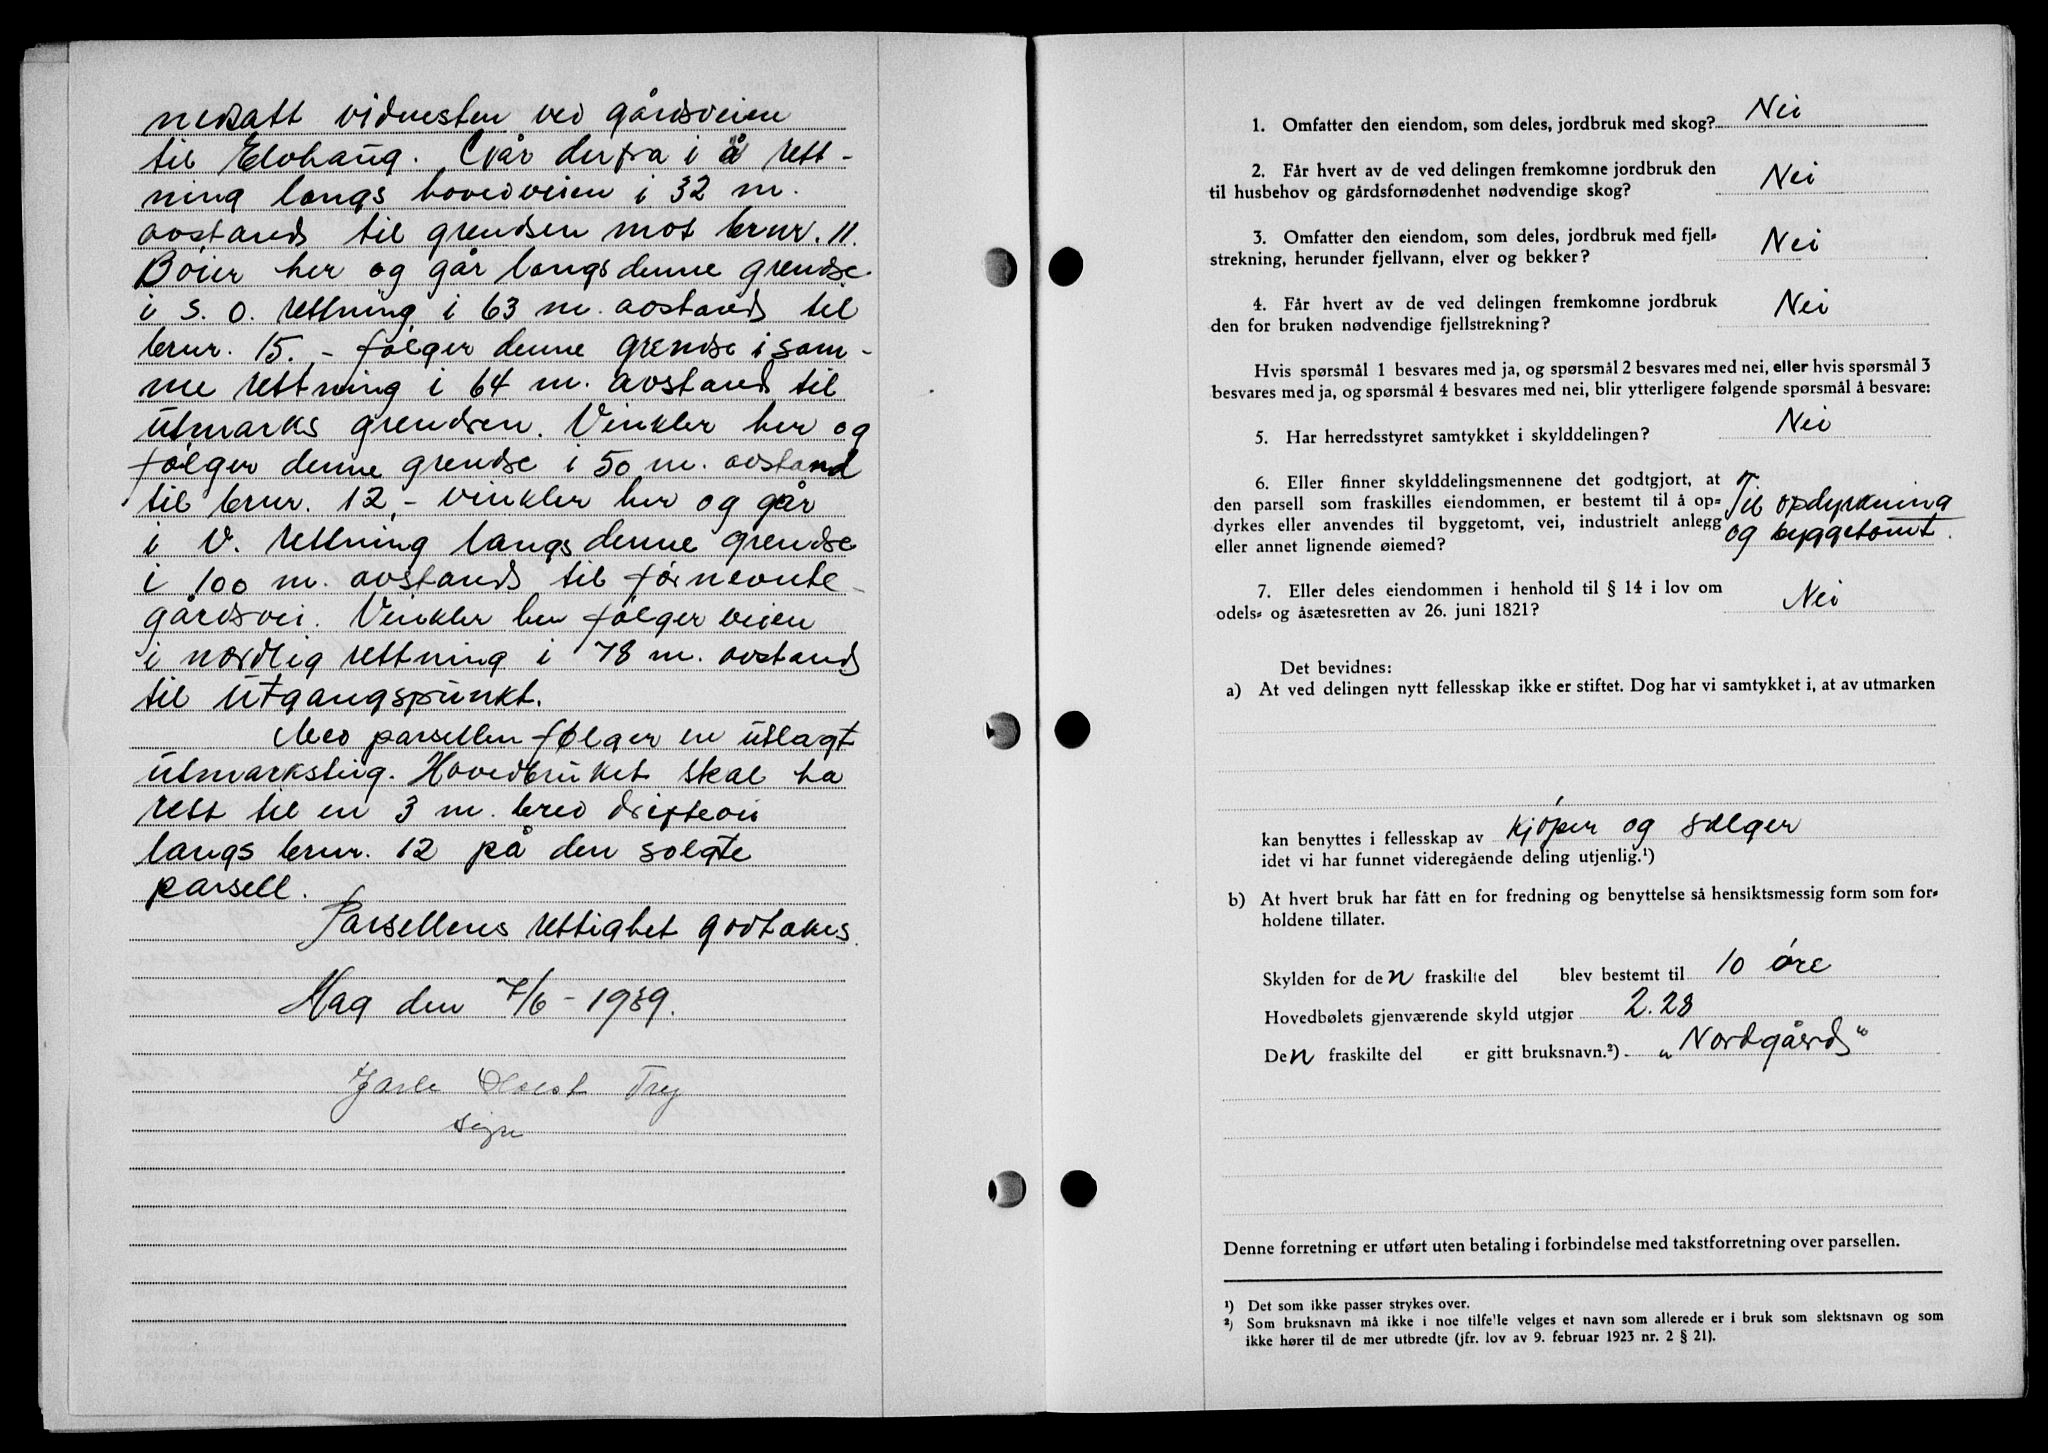 nedsatt vidnesten ved gårdsveien
til Elvhaug. Går derfra i Ø rett-
ning langs hovedveien i 32 m.
avstand til grendsen mot brnr. 11.
Bøier her og går langs denne grendse
i S. O. rettning i 63 m. avstand til
brnr. 15. - følger denne grendse i sam-
me rettning i 64 m. avstand til
utmarks grendsen. Vinkler her og
følger denne grendse i 50 m. avstand
til brnr. 12, - vinkler her og går
i V. rettning langs denne grendse
i 100 m. avstand til førnevnte
gårdsvei. Vinkler her følger veien
i nordlig rettning i 78 m. avstand
til utgangspunkt.
Med parsellen følger en utlagt
utmarksteig. Hovedbruket skal ha
rett til en 3 m. bred driftevei
langs brnr. 12 på den solgte
parsell.
Parsellens rettighet godtakes.
Mag den 7/6 - 1939.
Jarle Holst Frey
sign
1. Omfatter den eiendom, som deles, jordbruk med skog? Nei
2. Får hvert av de ved delingen fremkomne jordbruk den
til husbehov og gårdsfornødenhet nødvendige skog? Nei
3. Omfatter den eiendom, som deles, jordbruk med fjell-
strekning, herunder fjellvann, elver og bekker? Nei
4. Får hvert av de ved delingen fremkomne jordbruk
den for bruken nødvendige fjellstrekning? Nei
Hvis spørsmål 1 besvares med ja, og spørsmål 2 besvares med nei, eller hvis spørsmål 3
besvares med ja, og spørsmål 4 besvares med nei, blir ytterligere følgende spørsmål å besvare:
5. Har herredsstyret samtykket i skylddelingen? Nei
6. Eller finner skylddelingsmennene det godtgjort, at
den parsell som fraskilles eiendommen, er bestemt til å op-
dyrkes eller anvendes til byggetomt, vei, industrielt anlegg
eller annet lignende øiemed? Til opdyrkning
og byggetomt.
7. Eller deles eiendommen i henhold til § 14 i lov om
odels- og åsætesretten av 26. juni 1821? Nei
Det bevidnes:
a) At ved delingen nytt fellesskap ikke er stiftet. Dog har vi samtykket i, at av utmarken
kan benyttes i fellesskap av kjøper og sælger
idet vi har funnet videregående deling utjenlig.¹)
b) At hvert bruk har fått en for fredning og benyttelse så hensiktsmessig form som for-
holdene tillater.
Skylden for den fraskilte del blev bestemt til 10 øre
Hovedbølets gjenværende skyld utgjør 2.28
Den fraskilte del er gitt bruksnavn.²) „Nordgård“
Denne forretning er utført uten betaling i forbindelse med takstforretning over parsellen.
¹) Det som ikke passer strykes over.
²) Som bruksnavn må ikke i noe tilfelle velges et navn som allerede er i bruk som slektsnavn og som
ikke hører til de mer utbredte (jfr. lov av 9. februar 1923 nr. 2 § 21).